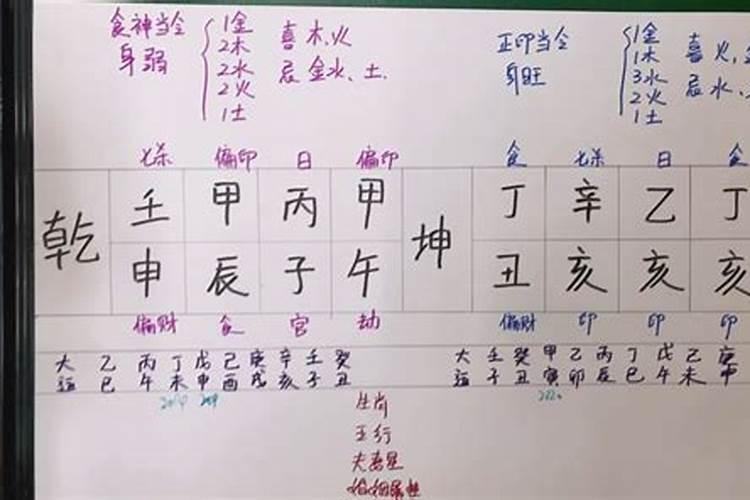 食神当令
身弱
1金
2木
2水
2火
1土
喜木火
忌金水、土.
正印当令
身旺
1金
1木
3水
2火
1土
喜火,
忌水、
七杀 偏印 日 偏印
乾 壬 甲 丙 甲
申 辰 子 午
偏财 食 官 劫
食 七杀 日 食
坤 丁 辛 乙 丁
丑 亥 亥 亥
偏财 印 印 印
大 乙 丙 丁 戊 己 庚 辛 壬 癸
运 巳 午 未 申 酉 戌 亥 子 丑
大 壬 癸 甲 乙 丙 丁 戊 己 庚
运 子 丑 寅 卯 辰 巳 午 未 申
生肖
五行
夫妻星